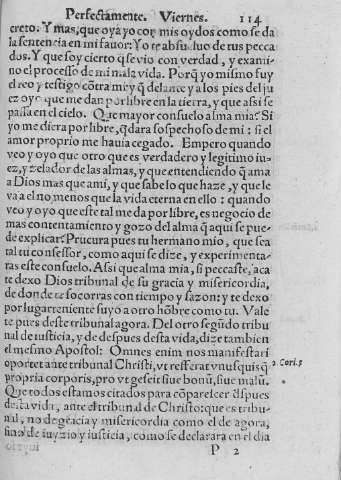 Perfectamente. Viernes. 114
creto. Y mas, que oya yo con mis oydos como se da
la sentencia en mi fauor: Yo te absueluo de tus pecca
dos. Y que soy cierto q̃ se vio con verdad, y exami-
no el processo de mi mala vida. Porq̃ yo mismo fuy
el reo y testigo cõtra mi y q̃ delante y a los pies del ju
ez oyo que me dan por libre en la tierra, y que assi se
passa en el cielo. Que mayor consuelo alma mia? Si
yo me diera por libre, q̃dara sospechoso de mi: si el
amor proprio me hauia cegado. Empero quando
veo y oyo que otro que es verdadero y legitimo iu-
ez, y zelador de las almas, y que entendiendo q̃ ama
a Dios mas que a mi, y que sabe lo que haze, y que le
va a el no menos que la vida eterna en ello: quando
veo y oyo que este tal me da por libre, es negocio de
mas contentamiento y gozo del alma q̃ aqui se pue-
de explicar. Procura pues tu hermano mio, que sea
tal tu confessor, como aqui se dize, y experimenta-
ras este consuelo. Assi que alma mia, si peccaste, aca
te dexo Dios tribunal de su gracia y misericordia,
de donde te socorras con tiempo y sazon: y te dexo
por lugarteniente suyo a otro hõbre como tu. Vale
te pues deste tribunal agora. Del otro segũdo tribu
nal de iusticia, y de despues desta vida, dize tambien
el mesmo Apostol: Omnes enim nos manifestari
oportet ante tribunal Christi, vt refferat vnusquisq̃
propria corporis, pro vt gesit siue bonũ, siue malũ.
2 Cori. 5
Que todos estamos citados para cõparelcer d'spues
desta vida, ante el tribunal de Christo: que es tribu-
nal, no de gracia y misericordia como el de agora,
sino de iuyzio y iusticia, como se declarara en el dia
P 2